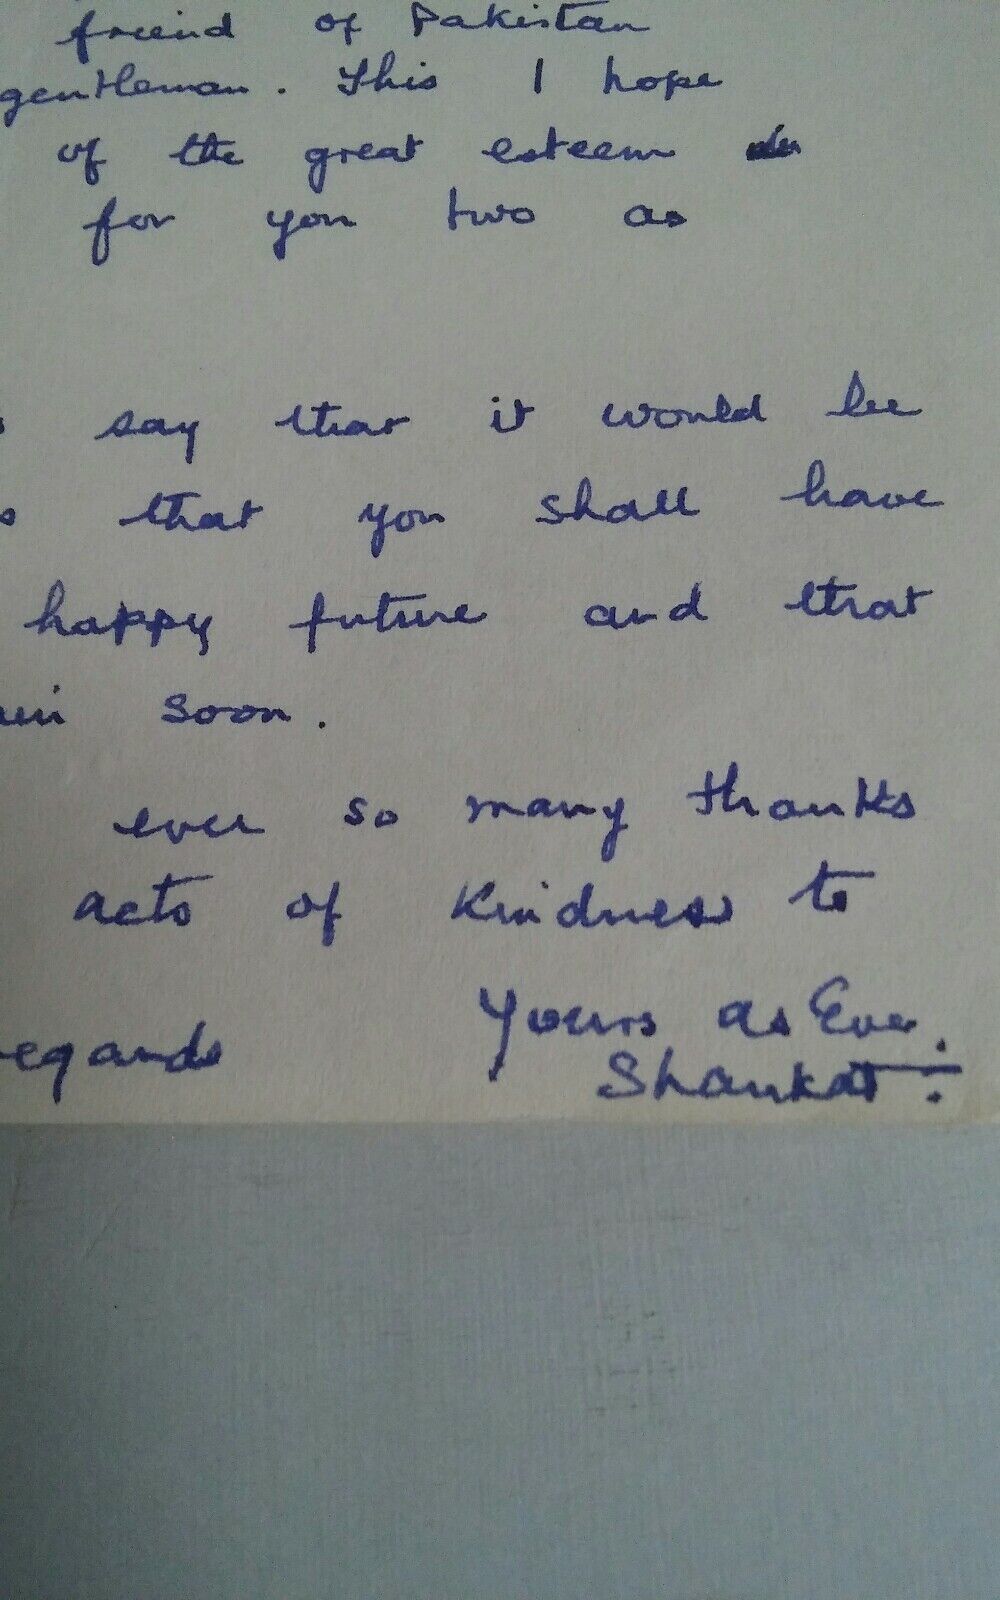 friend of Pakistan
gentleman. This I hope
of the great esteem
for you two as
say that it would be
that you shall have
happy future and that
soon.
ever so many thanks
acts of kindness to
egards Yours as Ever.
Shaukat